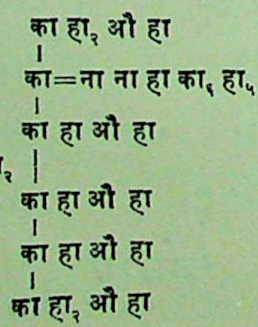 का हा₂ औ हा
का=ना ना हा का₆ हा५
का हा औ हा
का हा औ हा
का हा औ हा
का हा₂ औ हा